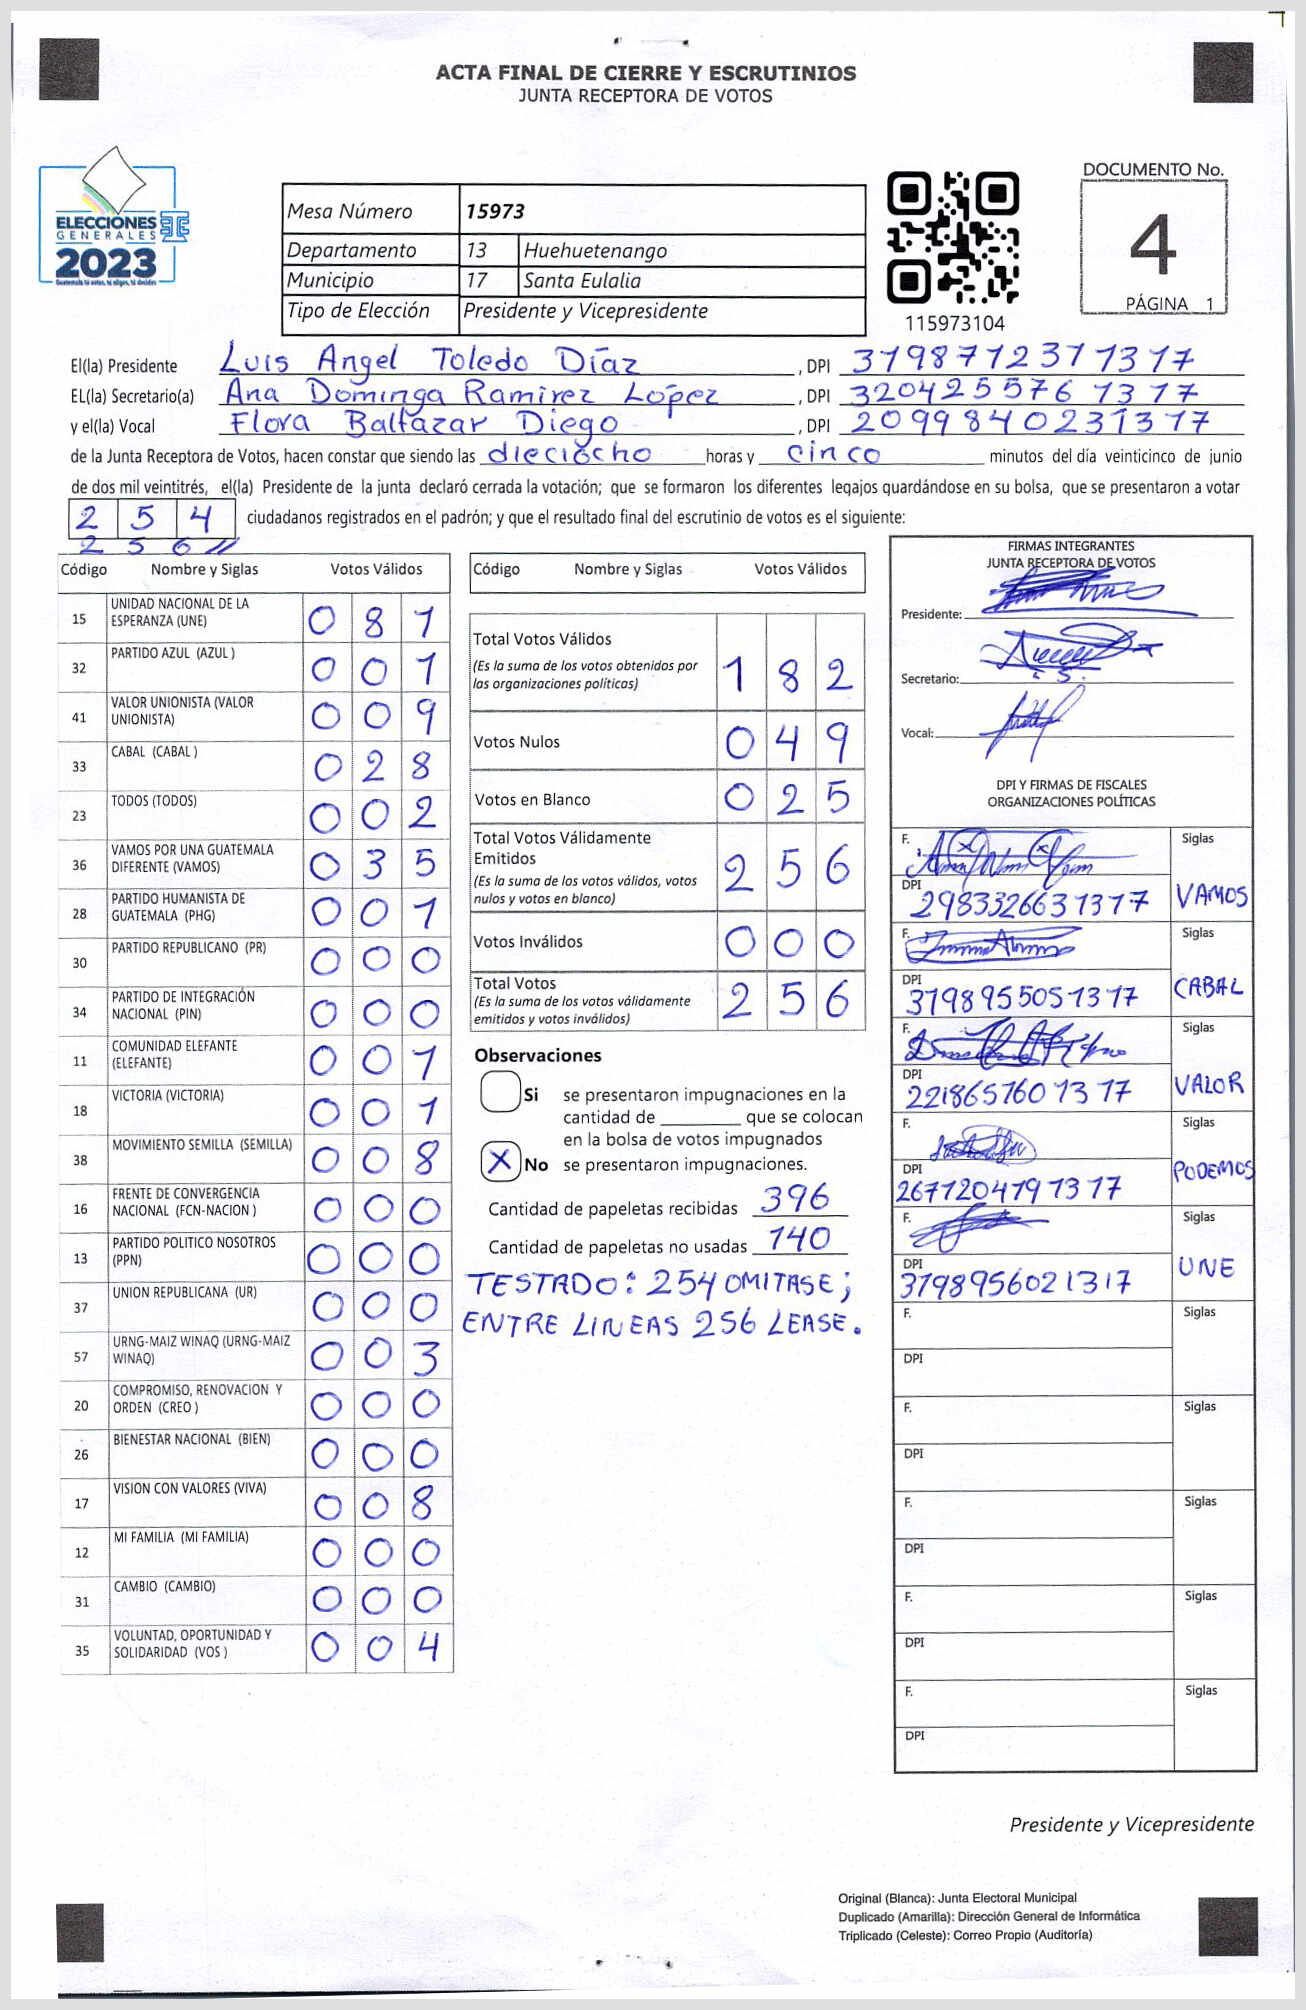 ACTA FINAL DE CIERRE Y ESCRUTINIOS
JUNTA RECEPTORA DE VOTOS
ELECCIONES
GENERALES
2023
Guatemala tú votas, tú eliges, tú decides
Mesa Número 15973
Departamento 13 Huehuetenango
Municipio 17 Santa Eulalia
Tipo de Elección Presidente y Vicepresidente
115973104
DOCUMENTO No.
4
PÁGINA 1
El(la) Presidente Luis Angel Toledo Díaz, DPI 3198772371317
EL(la) Secretario(a) Ana Dominga Ramirez López, DPI 3204255761317
y el(la) Vocal Flora Baltazar Diego, DPI 2099840231317
de la Junta Receptora de Votos, hacen constar que siendo las dieciocho horas y cinco minutos del día veinticinco de junio
de dos mil veintitrés, el(la) Presidente de la junta declaró cerrada la votación; que se formaron los diferentes legajos guardándose en su bolsa, que se presentaron a votar
2 5 4 ciudadanos registrados en el padrón; y que el resultado final del escrutinio de votos es el siguiente:
2 5 6 //
Código Nombre y Siglas Votos Válidos
15 UNIDAD NACIONAL DE LA ESPERANZA (UNE) 0 8 1
32 PARTIDO AZUL (AZUL ) 0 0 1
41 VALOR UNIONISTA (VALOR UNIONISTA) 0 0 9
33 CABAL (CABAL ) 0 2 8
23 TODOS (TODOS) 0 0 2
36 VAMOS POR UNA GUATEMALA DIFERENTE (VAMOS) 0 3 5
28 PARTIDO HUMANISTA DE GUATEMALA (PHG) 0 0 1
30 PARTIDO REPUBLICANO (PR) 0 0 0
34 PARTIDO DE INTEGRACIÓN NACIONAL (PIN) 0 0 0
11 COMUNIDAD ELEFANTE (ELEFANTE) 0 0 1
18 VICTORIA (VICTORIA) 0 0 1
38 MOVIMIENTO SEMILLA (SEMILLA) 0 0 8
16 FRENTE DE CONVERGENCIA NACIONAL (FCN-NACION ) 0 0 0
13 PARTIDO POLITICO NOSOTROS (PPN) 0 0 0
37 UNION REPUBLICANA (UR) 0 0 0
57 URNG-MAIZ WINAQ (URNG-MAIZ WINAQ) 0 0 3
20 COMPROMISO, RENOVACION Y ORDEN (CREO ) 0 0 0
26 BIENESTAR NACIONAL (BIEN) 0 0 0
17 VISION CON VALORES (VIVA) 0 0 8
12 MI FAMILIA (MI FAMILIA) 0 0 0
31 CAMBIO (CAMBIO) 0 0 0
35 VOLUNTAD, OPORTUNIDAD Y SOLIDARIDAD (VOS ) 0 0 4
Código Nombre y Siglas Votos Válidos
Total Votos Válidos
(Es la suma de los votos obtenidos por
las organizaciones políticas) 1 8 2
Votos Nulos 0 4 9
Votos en Blanco 0 2 5
Total Votos Válidamente
Emitidos
(Es la suma de los votos válidos, votos
nulos y votos en blanco) 2 5 6
Votos Inválidos 0 0 0
Total Votos
(Es la suma de los votos válidamente
emitidos y votos inválidos) 2 5 6
Observaciones
Si se presentaron impugnaciones en la
cantidad de ________ que se colocan
en la bolsa de votos impugnados
X No se presentaron impugnaciones.
Cantidad de papeletas recibidas 396
Cantidad de papeletas no usadas 140
TESTADO: 254 OMITASE;
ENTRE LINEAS 256 LEASE.
FIRMAS INTEGRANTES
JUNTA RECEPTORA DE VOTOS
Presidente:
Secretario:
Vocal:
DPI Y FIRMAS DE FISCALES
ORGANIZACIONES POLÍTICAS
F. Siglas
DPI 2983326631317 VAMOS
F. Siglas
DPI 3198955051317 CABAL
F. Siglas
DPI 2218657601317 VALOR
F. Siglas
DPI 2677204791317 PODEMOS
F. Siglas
DPI 3198956021317 UNE
F. Siglas
DPI
F. Siglas
DPI
F. Siglas
DPI
F. Siglas
DPI
F. Siglas
DPI
Presidente y Vicepresidente
Original (Blanca): Junta Electoral Municipal
Duplicado (Amarilla): Dirección General de Informática
Triplicado (Celeste): Correo Propio (Auditoría)